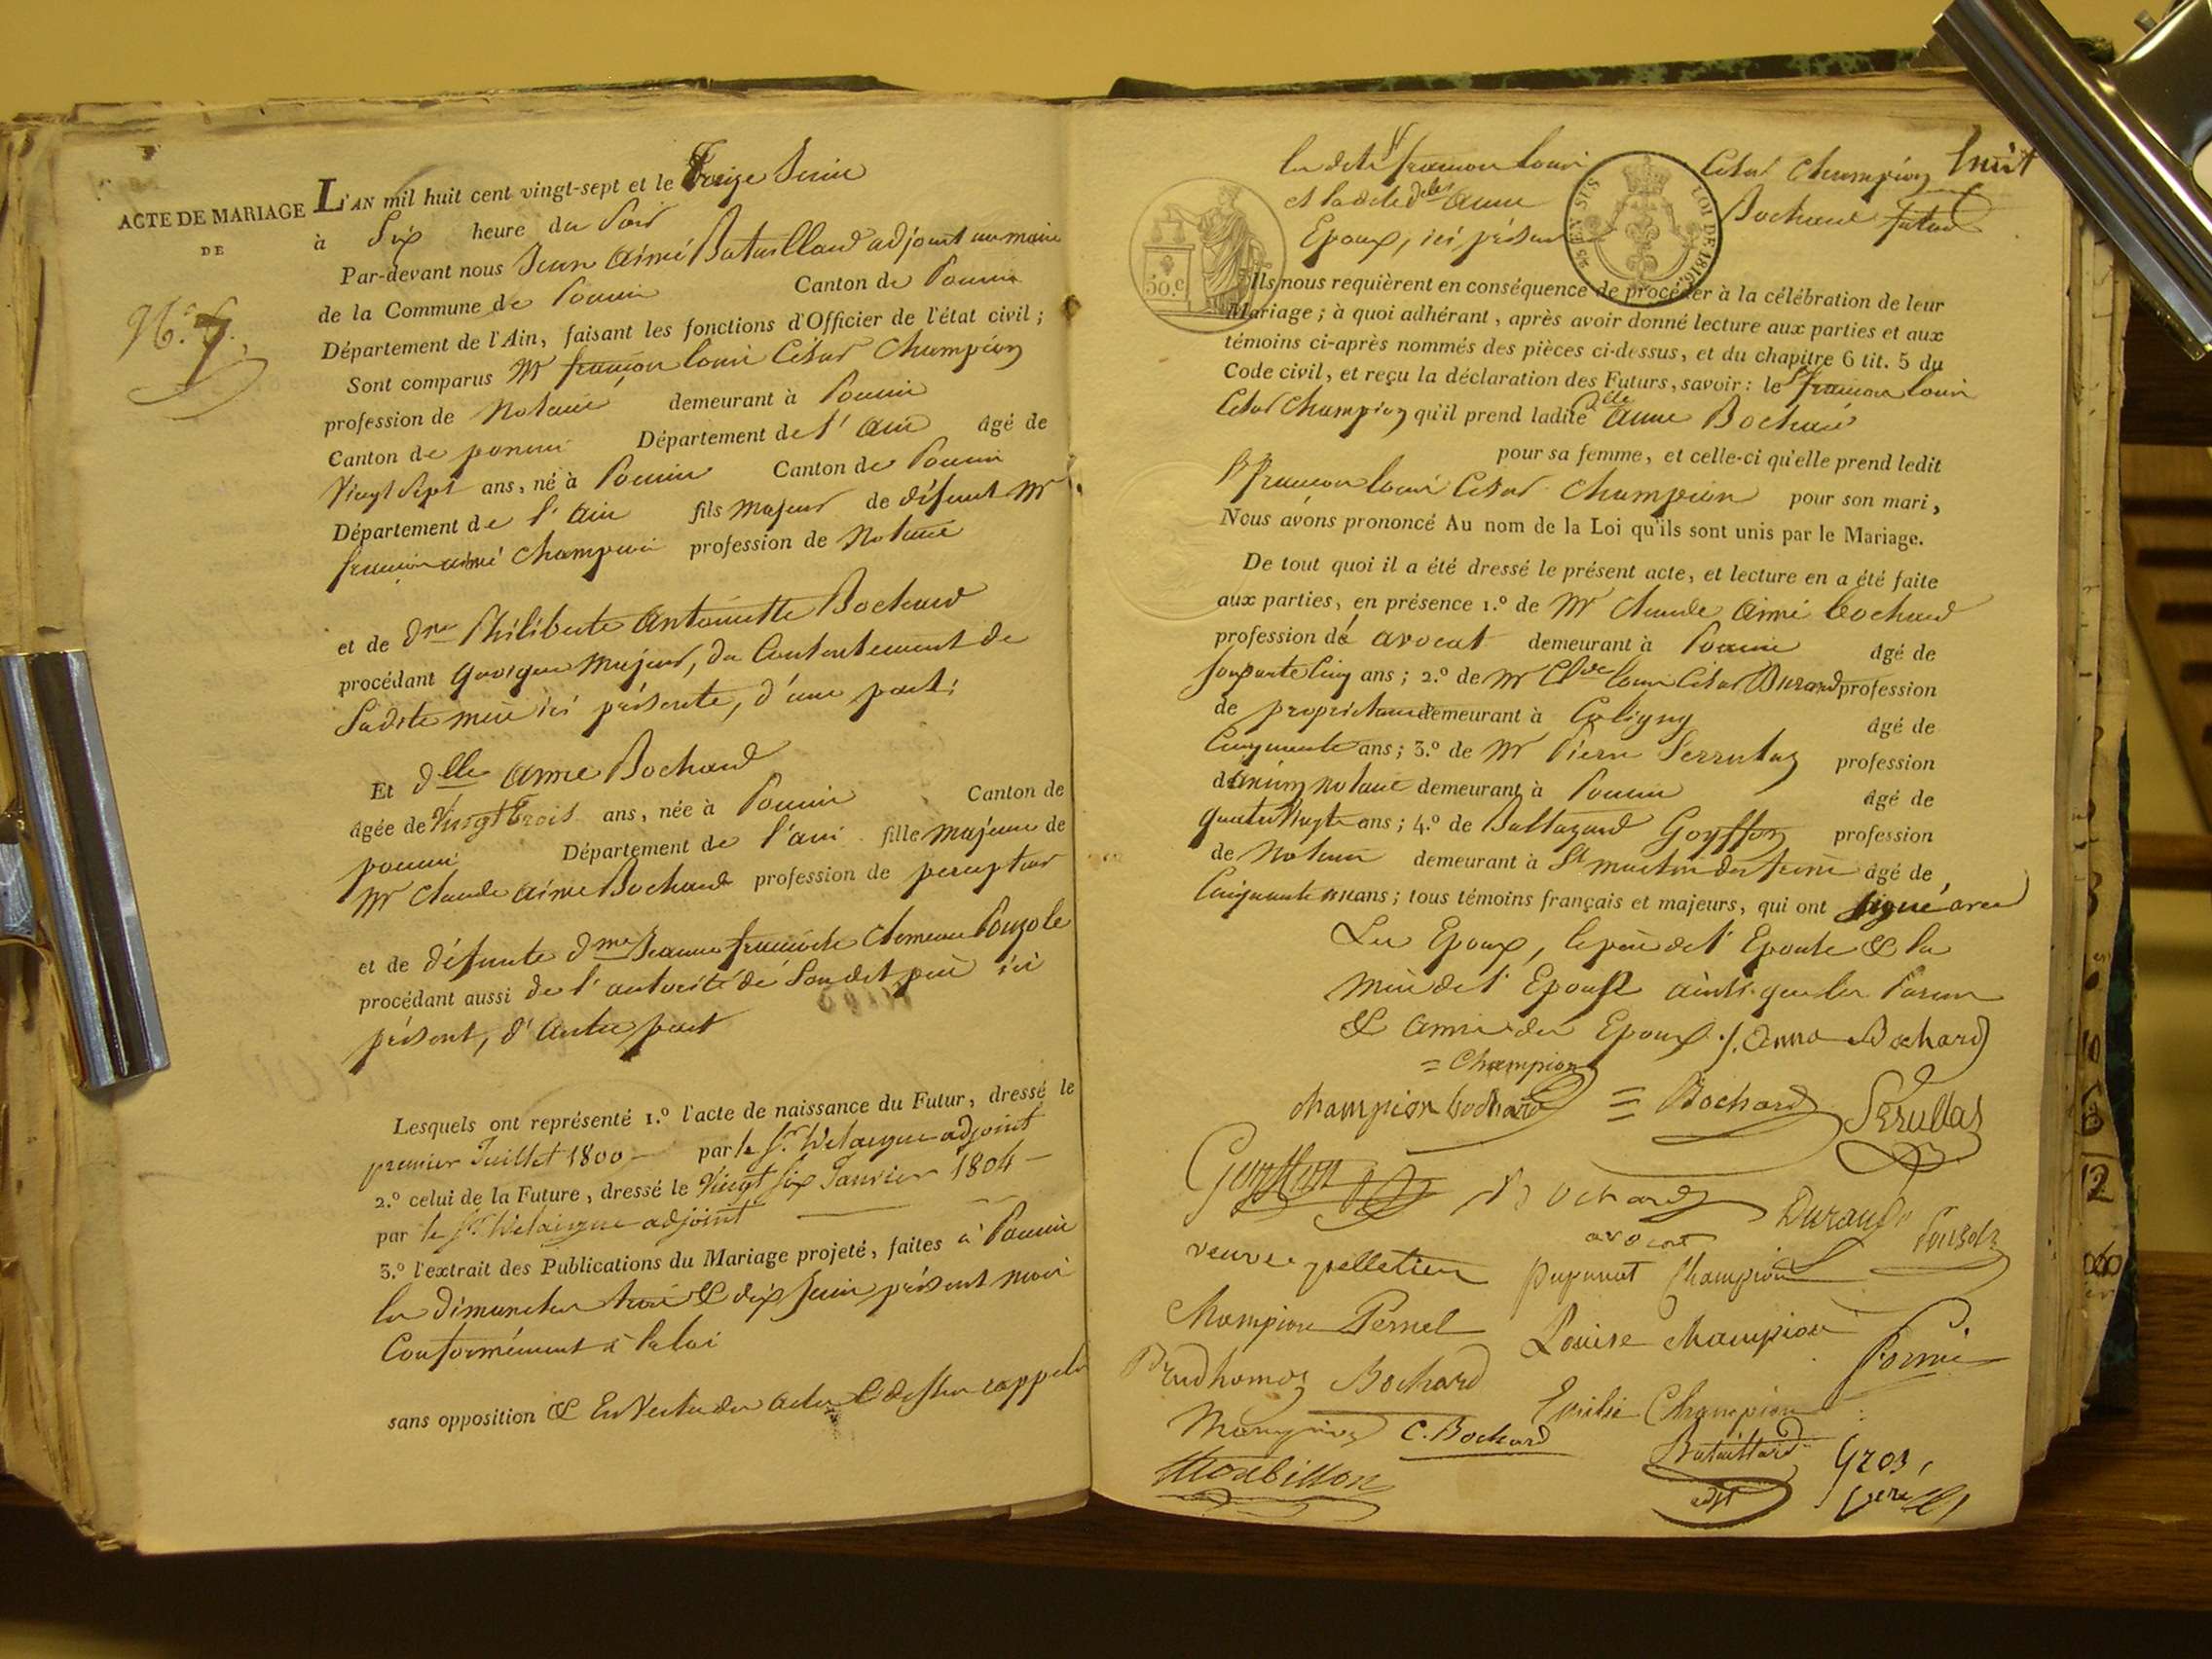 ACTE DE MARIAGE
DE
N.º 7
L'AN mil huit cent vingt-sept et le Treize Juin
à Six heure du Soir
Par-devant nous Jean Aimé Bataillard adjoint au maire
de la Commune de Poncin Canton de Poncin
Département de l'Ain, faisant les fonctions d'Officier de l'état civil ;
Sont comparus Mr françois louis César Champion
profession de Notaire demeurant à Poncin
Canton de poncin Département de l'ain âgé de
Vingt Sept ans, né à Poncin Canton de Poncin
Département de l'ain fils majeur de défunt Mr
françois aimé Champion profession de Notaire
et de dme Philiberte Antoinette Bochard
procédant quoique majeur, du Consentement de
Sadite mère ici présente, d'une part ;
Et dlle Anne Bochard
âgée de Vingt trois ans, née à Poncin Canton de
poncin Département de l'ain fille majeure de
Mr Claude aimé Bochard profession de percepteur
et de défunte dme Jeanne françoise Pouzole
procédant aussi de l'autorité de Son dit père ici
présent, d'autre part
Lesquels ont représenté 1.º l'acte de naissance du Futur, dressé le
premier Juillet 1800 par le Sr. adjoint
2.º celui de la Future, dressé le Vingt Six Janvier 1804
par le Sr. adjoint
3.º l'extrait des Publications du Mariage projeté, faites à Poncin
les dimanches trois & dix Juin présent mois
Conformément à la loi
sans opposition & En Vertu des actes Cidessus rappelés
huit
les dits Sr françois louis César Champion
et ladite dlle Anne Bochard futurs
Epoux, ici présens
50.c
25 EN SUS
LOI DE 1816
Ils nous requièrent en conséquence de procéder à la célébration de leur
Mariage ; à quoi adhérant, après avoir donné lecture aux parties et aux
témoins ci-après nommés des pièces ci-dessus, et du chapitre 6 tit. 5 du
Code civil, et reçu la déclaration des Futurs, savoir : le Sr françois louis
César Champion qu'il prend ladite dlle Anne Bochard
pour sa femme, et celle-ci qu'elle prend ledit
Sr françois louis César Champion pour son mari,
Nous avons prononcé Au nom de la Loi qu'ils sont unis par le Mariage.
De tout quoi il a été dressé le présent acte, et lecture en a été faite
aux parties, en présence 1.º de Mr Claude Aimé bochard
profession d' avocat demeurant à Poncin âgé de
Soixante Cinq ans ; 2.º de Mr louis César Durand profession
de propriétaire demeurant à Coligny âgé de
Cinquante ans ; 3.º de Mr Pierre Serrulaz profession
d'ancien notaire demeurant à Poncin âgé de
quatre Vingts ans ; 4.º de Baltazard Goyffon profession
de Notaire demeurant à St martin du frene âgé de
Cinquante ans ; tous témoins français et majeurs, qui ont signé avec
Les Epoux, le père de l'Epouse & la
mère de l'Epoux ainsi que les Parens
& amis des Epoux. Anna Bochard
= Champion
Champion bochard = Bochard Serullas
Goyffon Bochard Durand Pouzole
avocat
veuve pelletier Champion
Champion Pernel Louise Champion
Prudhomez Bochard
Emilie Champion
C. Bochard Bataillard Gros,
Morbillon adjt père